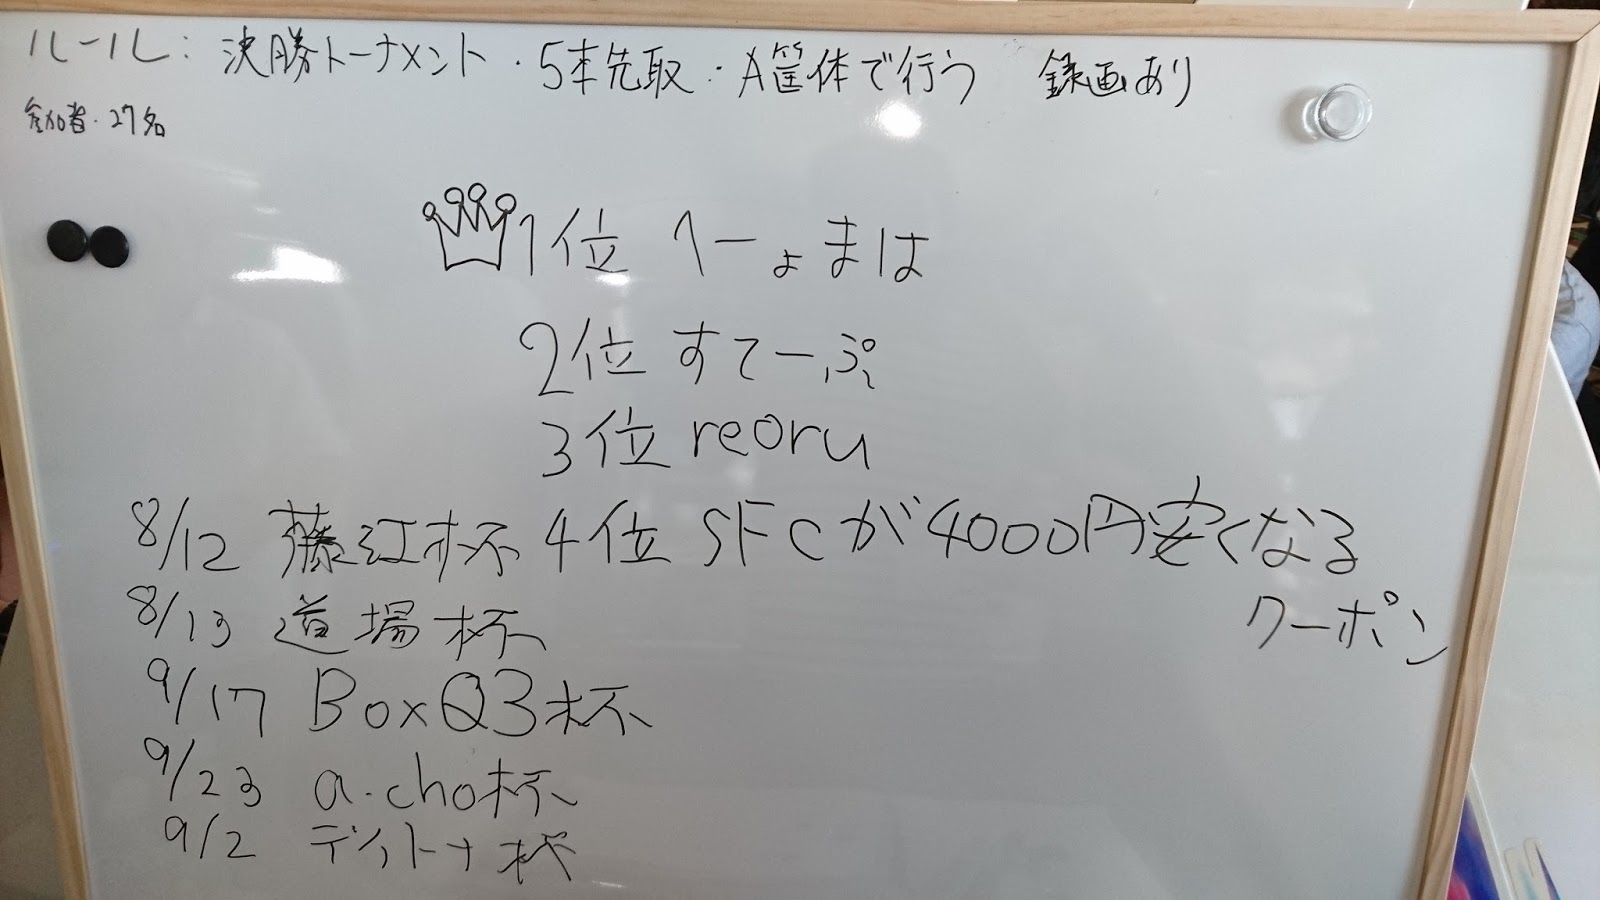 ルール: 決勝トーナメント・5本先取・A筐体で行う 録画あり
参加者・27名
1位 へーょまは
2位 すてーぷ
3位 reoru
8/12 藤江杯 4位 SFCが4000円安くなる
クーポン
8/13 道場杯
9/17 BoxQ3杯
9/23 a-cho杯
9/2 デイトナ杯